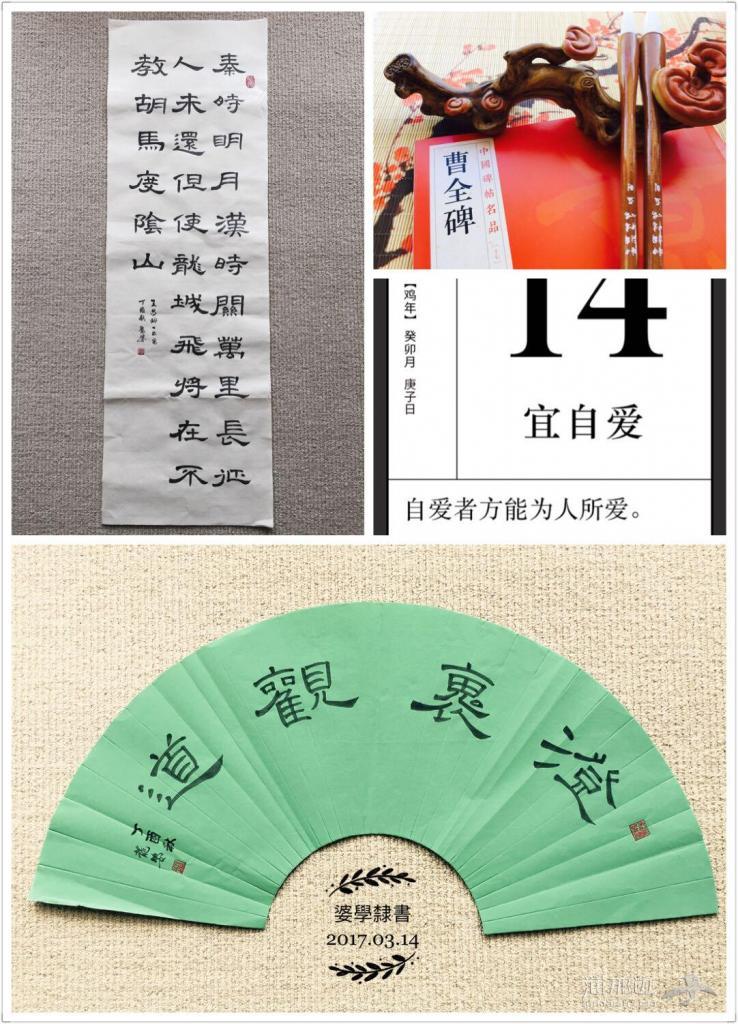 秦時明月漢時關萬里長征
人未還但使龍城飛將在不
教胡馬度陰山
丁酉秋
中國碑帖名品
曹全碑
14
【鸡年】 癸卯月 庚子日
宜自爱
自爱者方能为人所爱。
澄裏觀道
丁酉秋
婆學隸書
2017.03.14